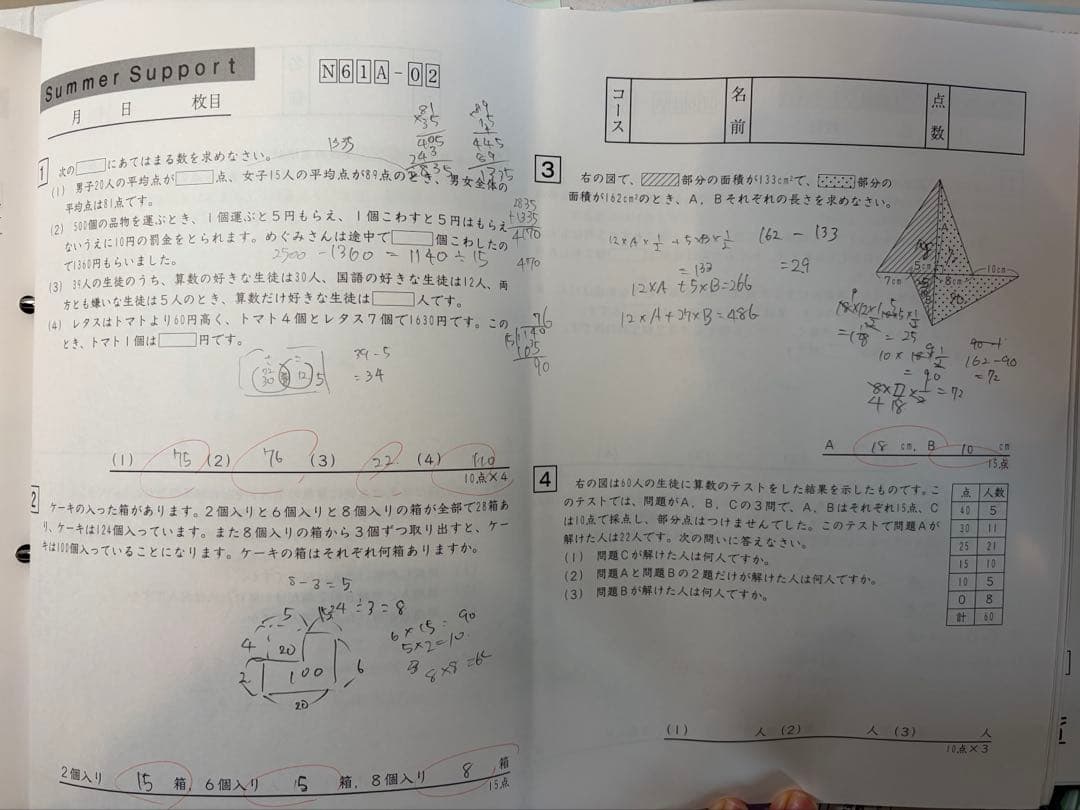 Summer Support
N61A-02
月 日 枚目
1
次の□にあてはまる数を求めなさい。
(1) 男子20人の平均点が□点、女子15人の平均点が89点のとき、男女全体の
平均点は81点です。
(2) 500個の品物を運ぶとき、1個運ぶと5円もらえ、1個こわすと5円はもらえ
ないうえに10円の罰金をとられます。めぐみさんは途中で□個こわしたの
で1360円もらいました。
2500 - 1360 = 1140 ÷ 15
(3) 39人の生徒のうち、算数の好きな生徒は30人、国語の好きな生徒は12人、両
方とも嫌いな生徒は5人のとき、算数だけ好きな生徒は□人です。
(4) レタスはトマトより60円高く、トマト4個とレタス7個で1630円です。この
とき、トマト1個は□円です。
39-5
=34
(1) 75 (2) 76 (3) 22 (4) 110
10点×4
2
ケーキの入った箱があります。2個入りと6個入りと8個入りの箱が全部で28箱あ
り、ケーキは124個入っています。また8個入りの箱から3個ずつ取り出すと、ケー
キは100個入っていることになります。ケーキの箱はそれぞれ何箱ありますか。
8-3=5
24÷3=8
5
4 20
2 100 6
20
6×15=90
5×2=10
2個入り 15 箱、6個入り 5 箱、8個入り 8 箱
15点
コース 名前 点数
3
右の図で、部分の面積が133cm²で、部分の
面積が162cm²のとき、A、Bそれぞれの長さを求めなさい。
162 - 133
=29
=133
12×A+5×B=266
12×A+27×B=486
A
5cm
7cm
8cm
10cm
B
=25
162-90
=72
=90
=72
A 18 cm、B 10 cm
15点
4
右の図は60人の生徒に算数のテストをした結果を示したものです。こ
のテストでは、問題がA、B、Cの3問で、A、Bはそれぞれ15点、C
は10点で採点し、部分点はつけませんでした。このテストで問題Aが
解けた人は22人です。次の問いに答えなさい。
(1) 問題Cが解けた人は何人ですか。
(2) 問題Aと問題Bの2題だけが解けた人は何人ですか。
(3) 問題Bが解けた人は何人ですか。
点 人数
40 5
30 11
25 21
15 10
10 5
0 8
計 60
(1) 人 (2) 人 (3) 人
10点×3